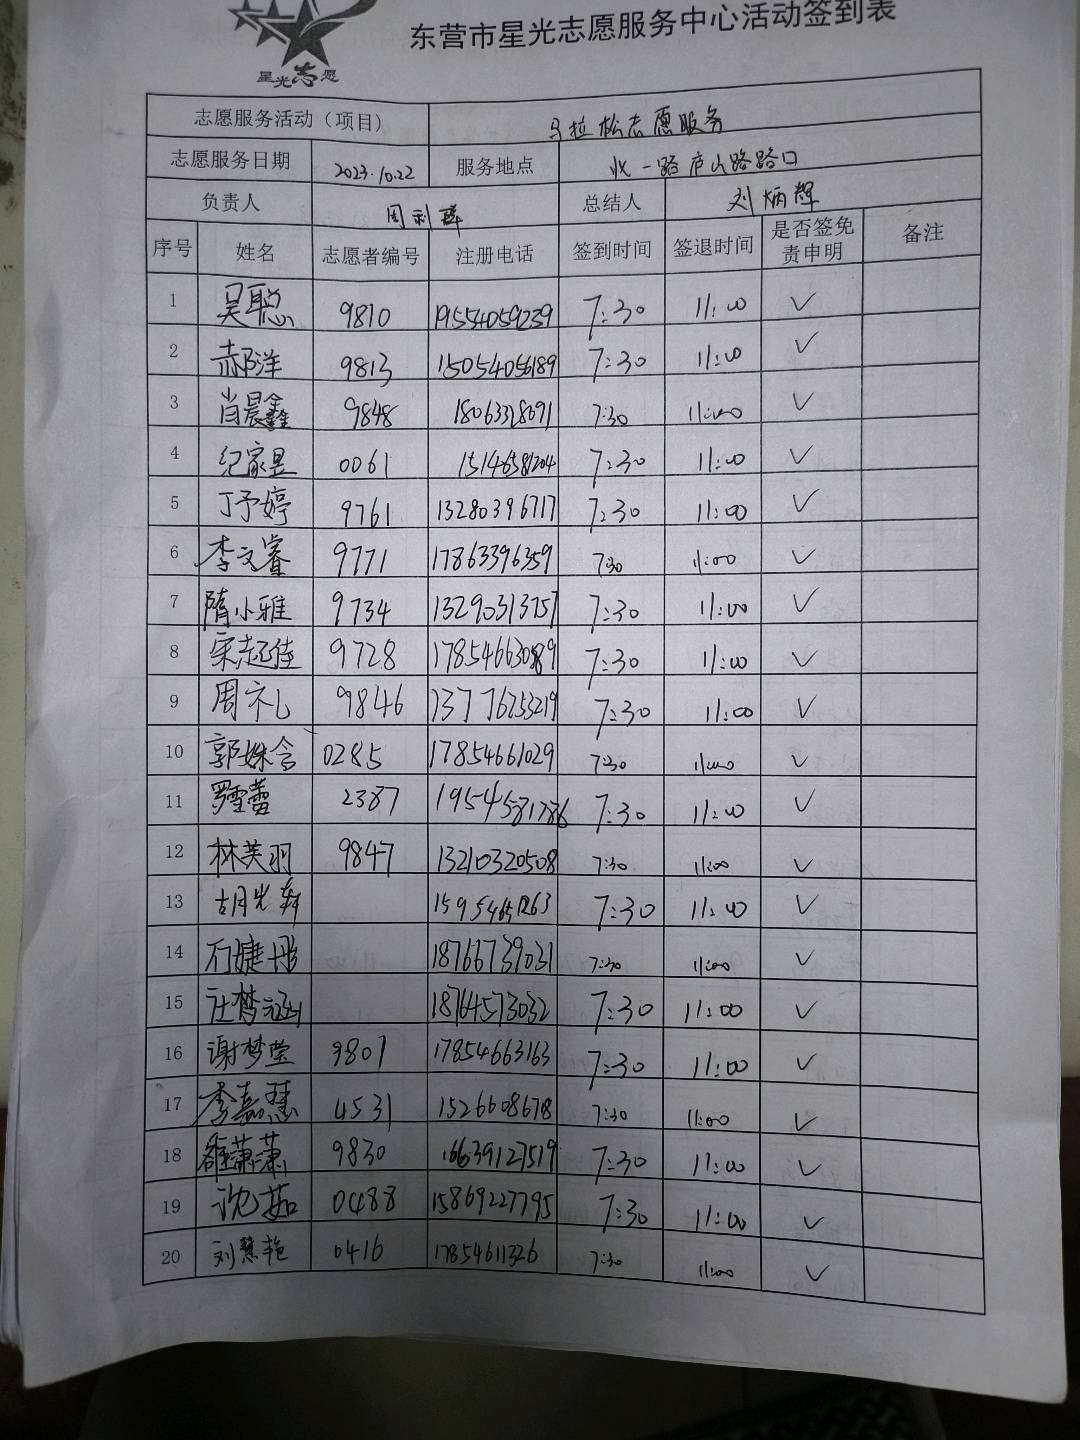 东营市星光志愿服务中心活动签到表
星光志愿
志愿服务活动（项目） 马拉松志愿服务
志愿服务日期 2023.10.22 服务地点 北一路庐山路路口
负责人 周利 总结人 刘炳辉
序号 姓名 志愿者编号 注册电话 签到时间 签退时间 是否签免责申明 备注
1 吴聪 9810 19554059239 7:30 11:00 ✓
2 郝洋 9813 15054056189 7:30 11:00 ✓
3 肖晨鑫 9848 18063328691 7:30 11:00 ✓
4 纪家昱 0061 15146581204 7:30 11:00 ✓
5 丁予婷 9761 13280396717 7:30 11:00 ✓
6 李文睿 9771 17863396359 7:30 11:00 ✓
7 隋小雅 9734 13290313757 7:30 11:00 ✓
8 宋起佳 9728 7:30 11:00 ✓
9 周礼 9846 13776253219 7:30 11:00 ✓
10 郭姝含 0285 17854661029 7:30 11:00 ✓
11 罗雪蕾 2387 19545781786 7:30 11:00 ✓
12 林芙羽 9847 13210320508 7:30 11:00 ✓
13 胡光 7:30 11:00 ✓
14 石婕彤 18766739031 7:30 11:00 ✓
15 庄梦涵 18764573032 7:30 11:00 ✓
16 谢梦莹 9807 17854663163 7:30 11:00 ✓
17 李嘉慧 4531 7:30 11:00 ✓
18 潇潇 9830 16639127519 7:30 11:00 ✓
19 沈茹 0488 15869227795 7:30 11:00 ✓
20 刘慧艳 0416 17854611326 7:30 11:00 ✓